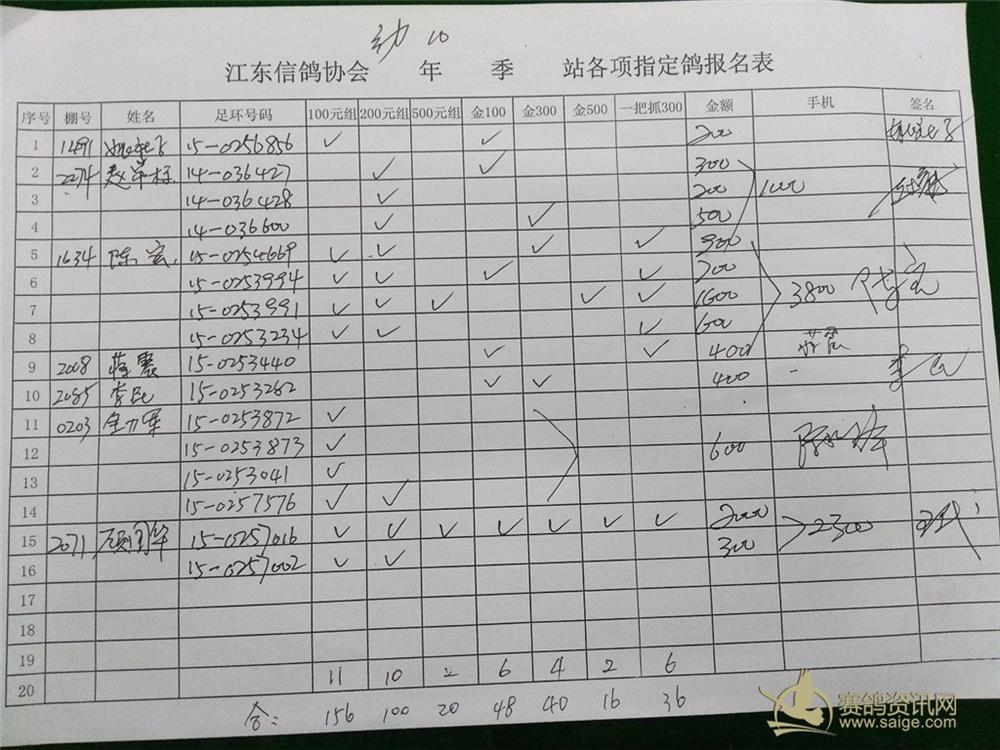 幼
江东信鸽协会 年 季 站各项指定鸽报名表
序号 棚号 姓名 足环号码 100元组 200元组 500元组 金100 金300 金500 一把抓300 金额 手机 签名
1 1491 15-0256856 ✓ ✓ 200
2 2274 14-036427 ✓ ✓ 300
3 14-036428 ✓ 200 1000
4 14-036600 ✓ ✓ 500
5 1634 陈宏 15-0254669 ✓ ✓ ✓ ✓ 900
6 15-0253994 ✓ ✓ ✓ ✓ 700
7 15-0253991 ✓ ✓ ✓ ✓ ✓ 1600 3800
8 15-0253234 ✓ ✓ ✓ 600
9 2008 蒋震 15-0253440 ✓ ✓ 400
10 2085 李民 15-0253262 ✓ ✓ 400
11 0203 15-0253872 ✓
12 15-0253873 ✓ 600
13 15-0253041 ✓
14 15-0257576 ✓ ✓
15 2071 15-0257016 ✓ ✓ ✓ ✓ ✓ ✓ ✓ 2000 2300
16 15-0257002 ✓ ✓ 300
17
18
19
20 11 10 2 6 4 2 6
合: 156 100 20 48 40 16 36
赛鸽资讯网
www.saige.com